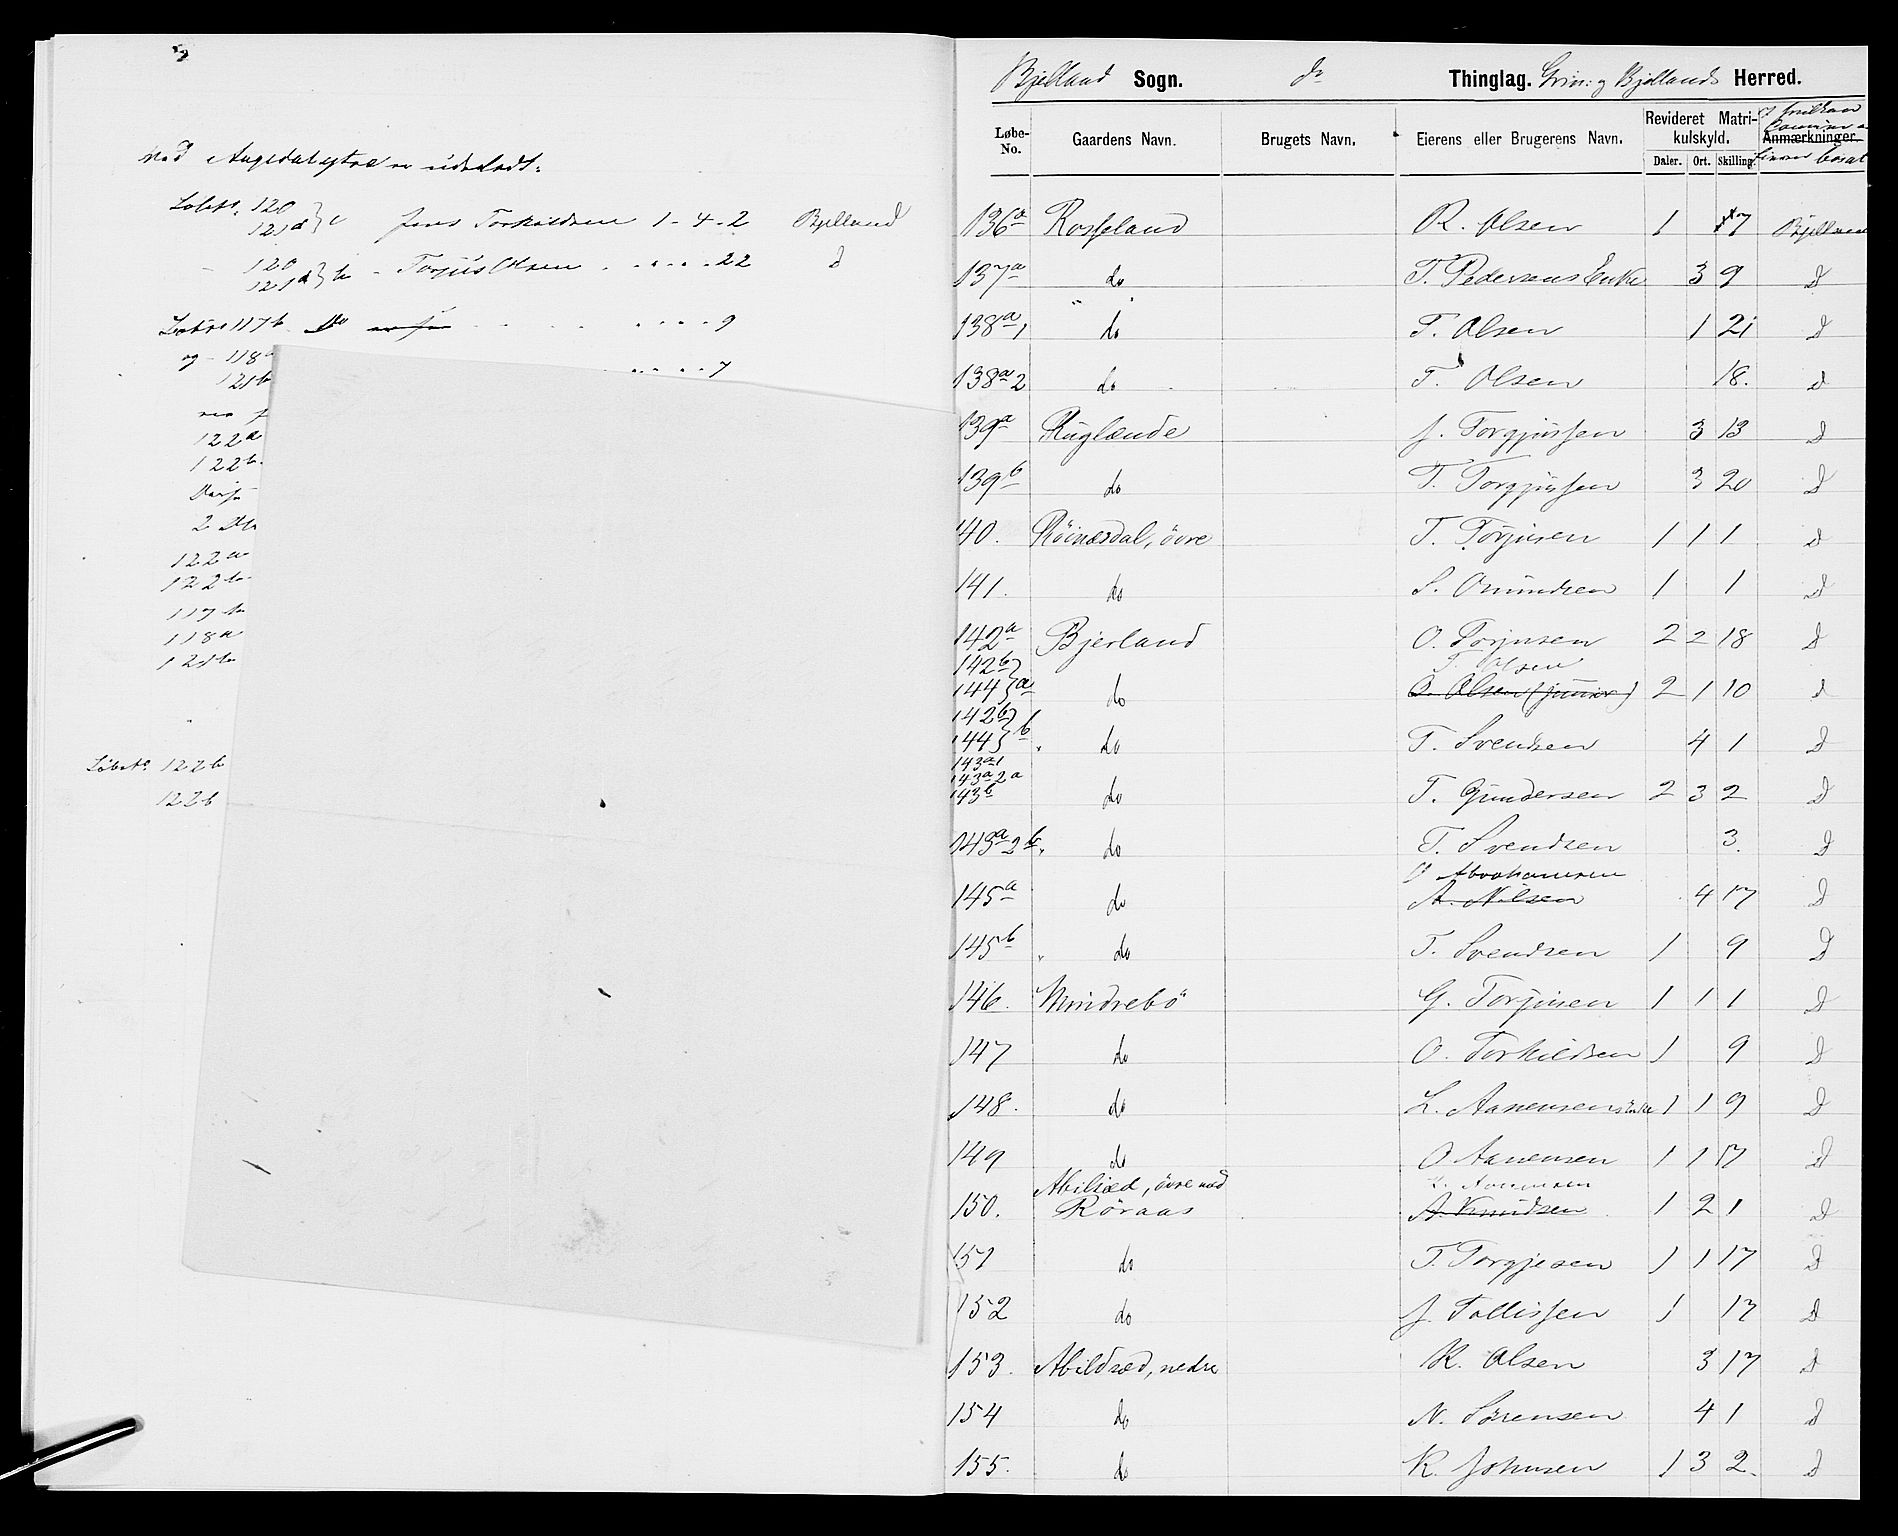 Med Augedalsytra er udeladt:
Løbeno. 120
121 d } c Jens Torkildsen 1 - 4 - 2 Bjelland
- 120
121 d } b - Torjus Olsen . . . . . 22 d
Løbeno 117 b Do . . . . . . 9
og - 118 a . . . . . 7
121 b
122 a
122 b
2 do
122 a
122 b
117 b
118 a
121 b
Løbeno 122 b
122 b
Bjelland Sogn. do Thinglag. Grin: og Bjellands Herred.
Løbe-No. Gaardens Navn. Brugets Navn. Eierens eller Brugerens Navn. Revideret Matrikulskyld. Anmærkninger.
Daler. Ort. Skilling. bosat
136 a Rosseland R. Olsen 1 17 Bjelland
137 a do T. Pedersens Enke 3 9 D
138 a 1 do T. Olsen 1 21 D
138 a 2 do T. Olsen 18. d
139 a Kuglænde J. Torgjussen 3 13 D
139 b do T. Torgjussen 3 20 D
140. Röinesdal, övre T. Torjusen 1 1 1 D
141. do S. Omundsen 1 1 D
142 a Bjerland O. Torjusen 2 2 18 D
142 b
144 } a do T. Olsen O. Olsen (junior) 2 1 10 d
142 b
144 } b do T. Svendsen 4 1 D
143 a 1
143 a 2 a
143 b do T. Gundersen 2 3 2 D
143 a 2 b do T. Svendsen 3. D
145 a do O Abrahamsen A. Nilsen 4 17 D
145 b do T. Svendsen 1 9 D
146. Mindrebö G. Torjusen 1 1 1 D
147 do O. Torkildsen 1 9 D
148. do L. Aanensens Enke 1 1 9 D
149 do O Aanensen 1 1 17 D
150. Abilsæd, övre med Röraas Aanensen A. Knudsen 1 2 1 D
151 do T. Torgjesen 1 1 17 D
152 do J. Tallissen 1 17 D
153. Abildsæd, nedre K. Olsen 3 17 D
154 do N. Sörensen 4 1 D
155. do K. Johnsen 1 3 2. D